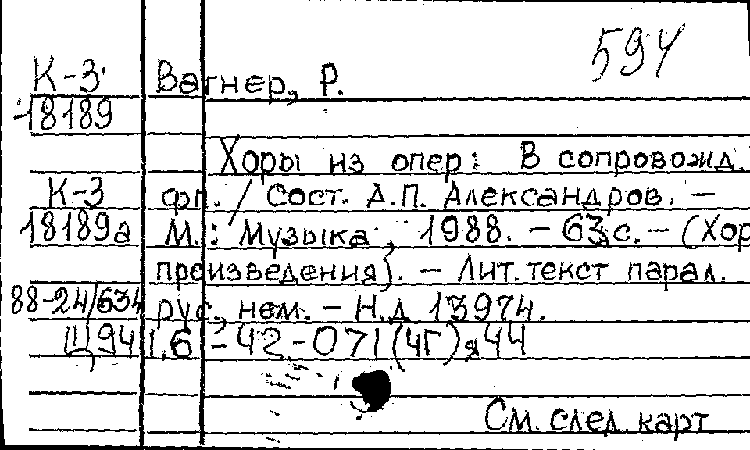 594
К-3 Вагнер, Р.
18189
Хоры из опер: В сопровожд.
К-3 фп. / Сост. А.П. Александров. –
18189а М.: Музыка, 1988. – 63 с. – (Хор
произведения). – Лит. текст парал.
88-24/634 рус., нем. – Н.д. 13974.
Ц941.6-42-071(4Г)я44
См. след. карт